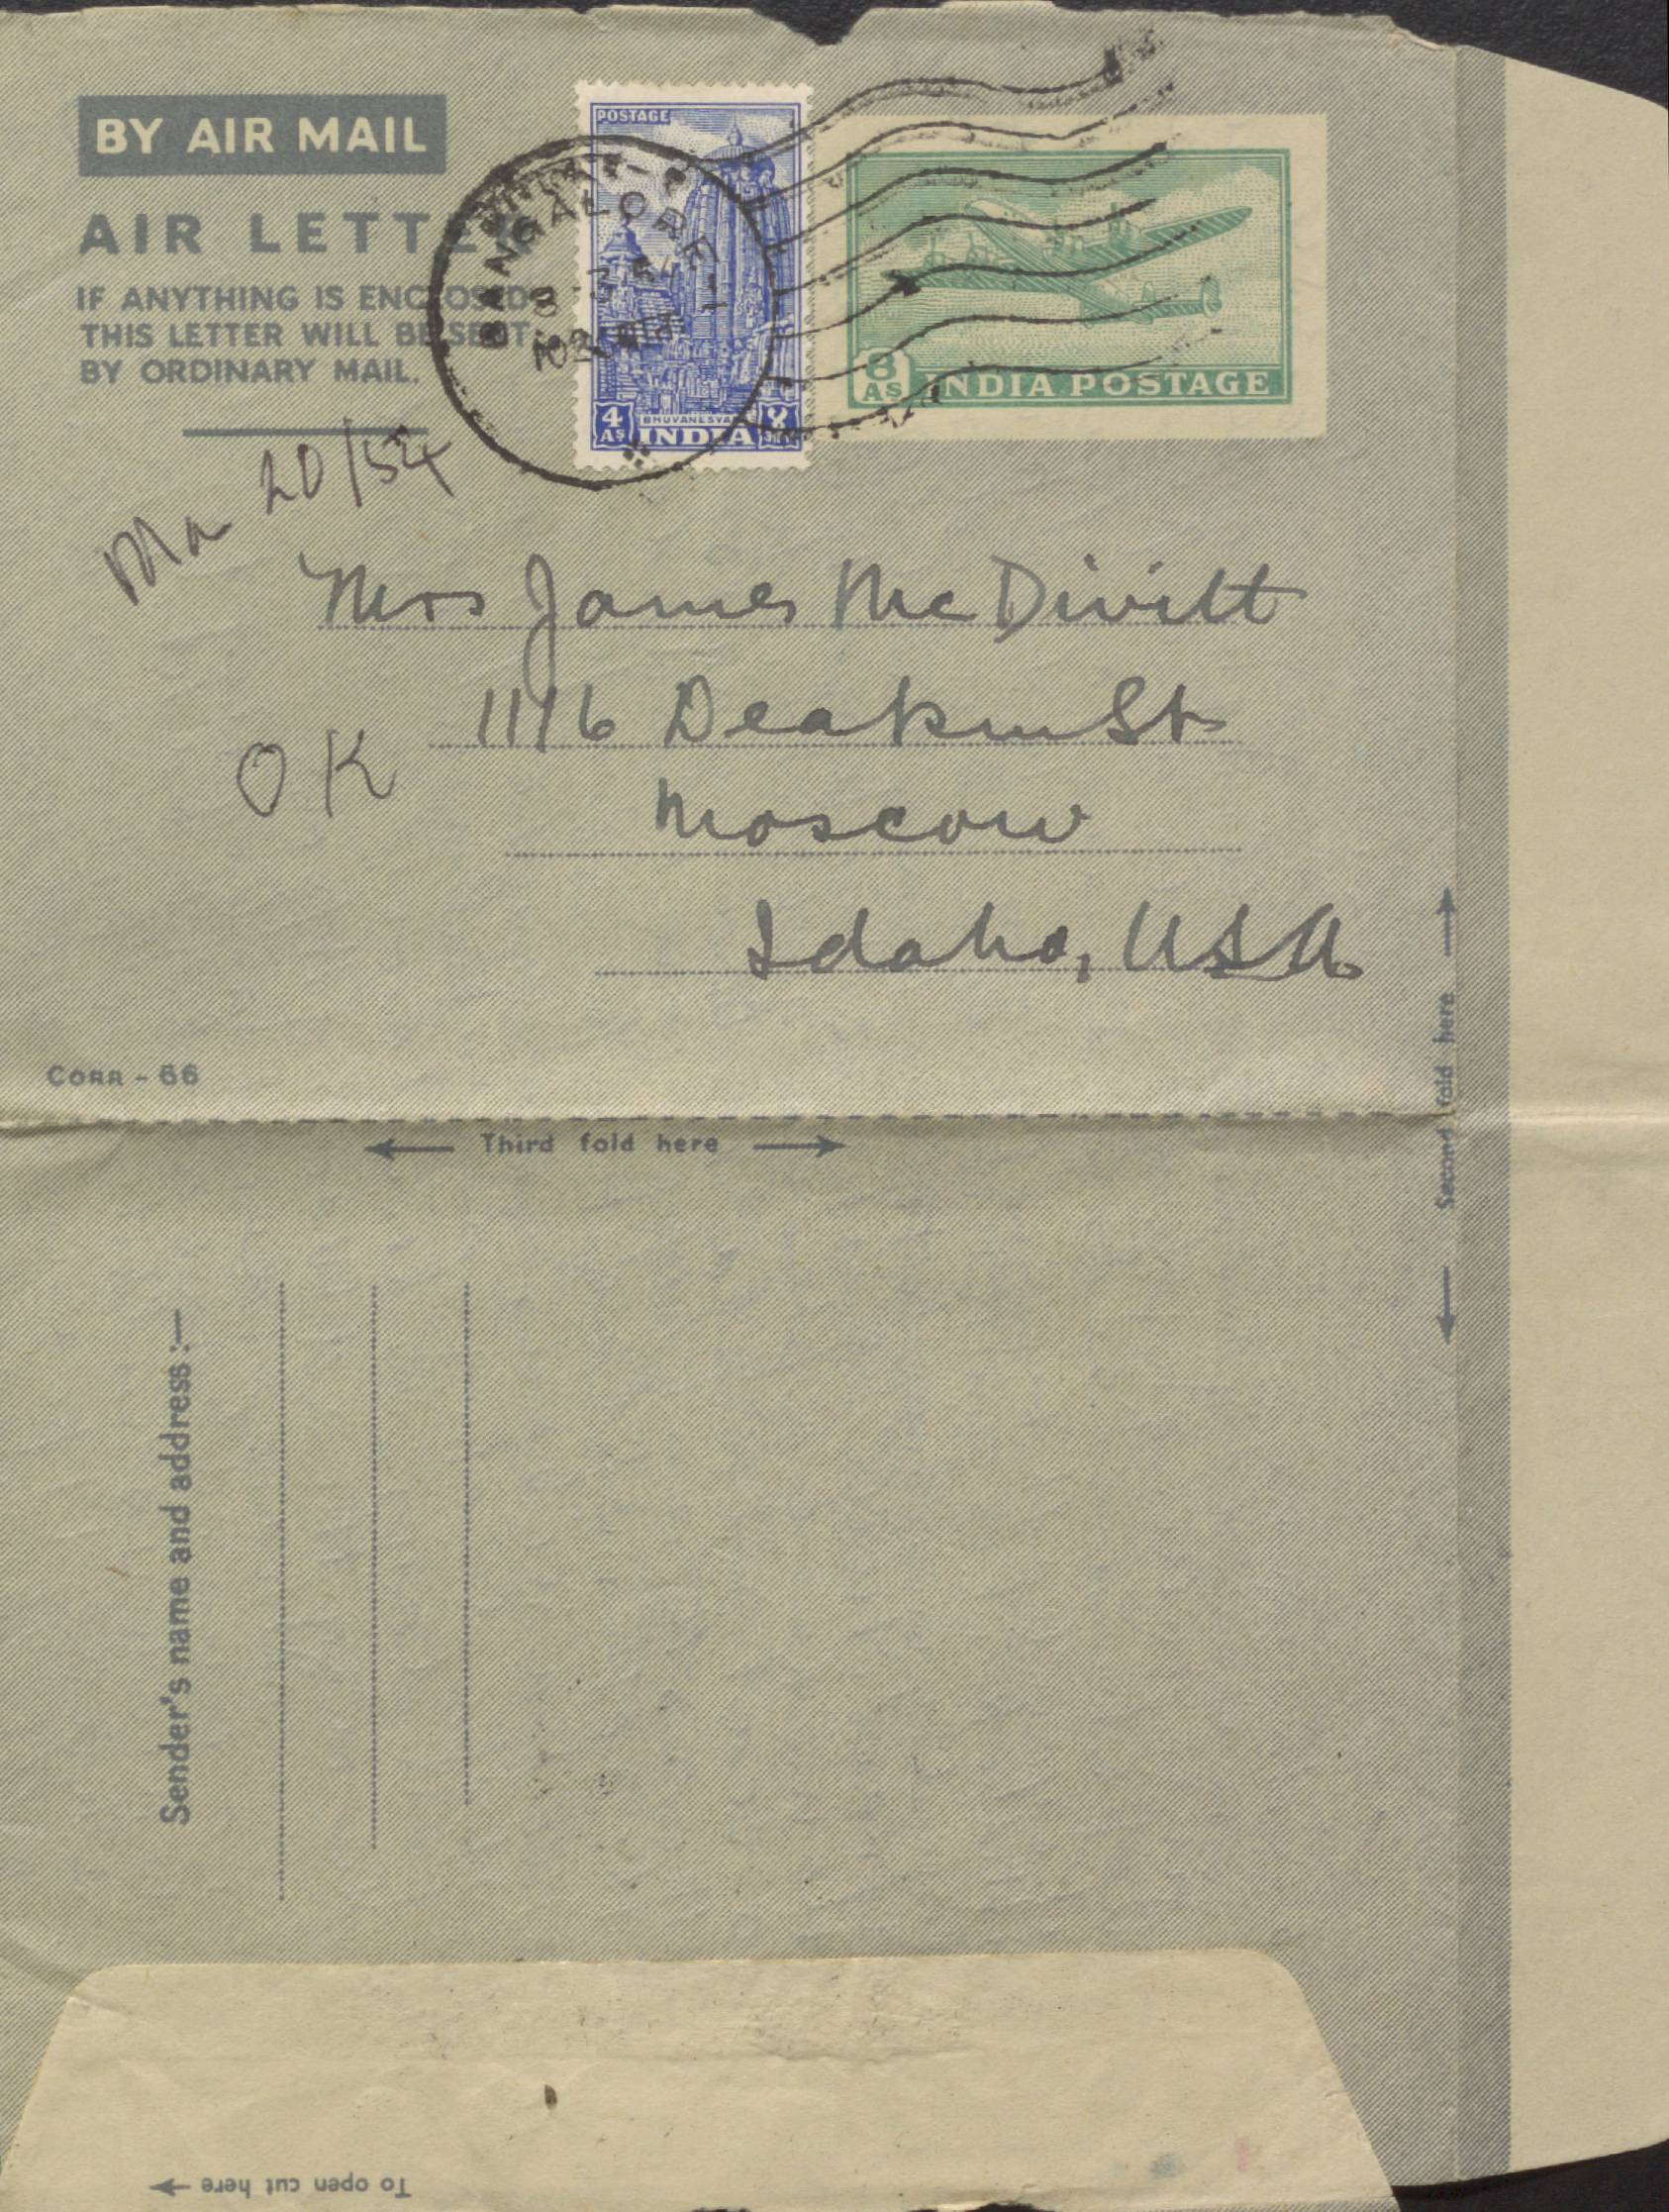 BY AIR MAIL
AIR LETTE
IF ANYTHING IS ENCLOSED
THIS LETTER WILL BE SENT
BY ORDINARY MAIL.
POSTAGE
BHUVANESVA
4 AS INDIA
BANGALORE
8 AS INDIA POSTAGE
Ma 20/54
Mrs James McDivitt
1116 Deakin St
OK
Moscow
Idaho, USA
CORR - 66
Third fold here
Second fold here
Sender's name and address :—
To open cut here